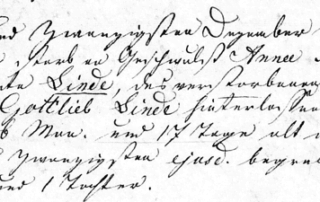 und zwanzigsten Dezember
starb an Geschwulst Anne
Linde, des verstorbenen
Gottlieb Linde hinterlassene
Mon. und 17 Tage alt
zwanzigsten ejusd. begra
und 1 Tochter.